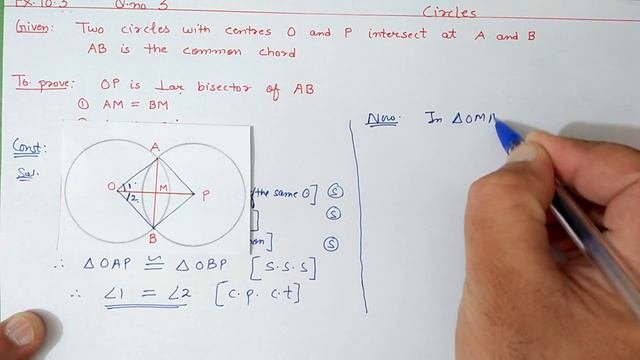 Ex. 10.3 Q.no 3 Circles
Given: Two circles with centres O and P intersect at A and B
AB is the common chord
To prove: OP is ⊥ar bisector of AB
① AM = BM
Const:
Sol.
A
O 1 M P
2
B
the same O] Ⓢ
Ⓢ
Ⓢ
∴ △OAP ≅ △OBP [S.S.S]
∴ ∠1 = ∠2 [C.P.C.T]
Now. In △OM